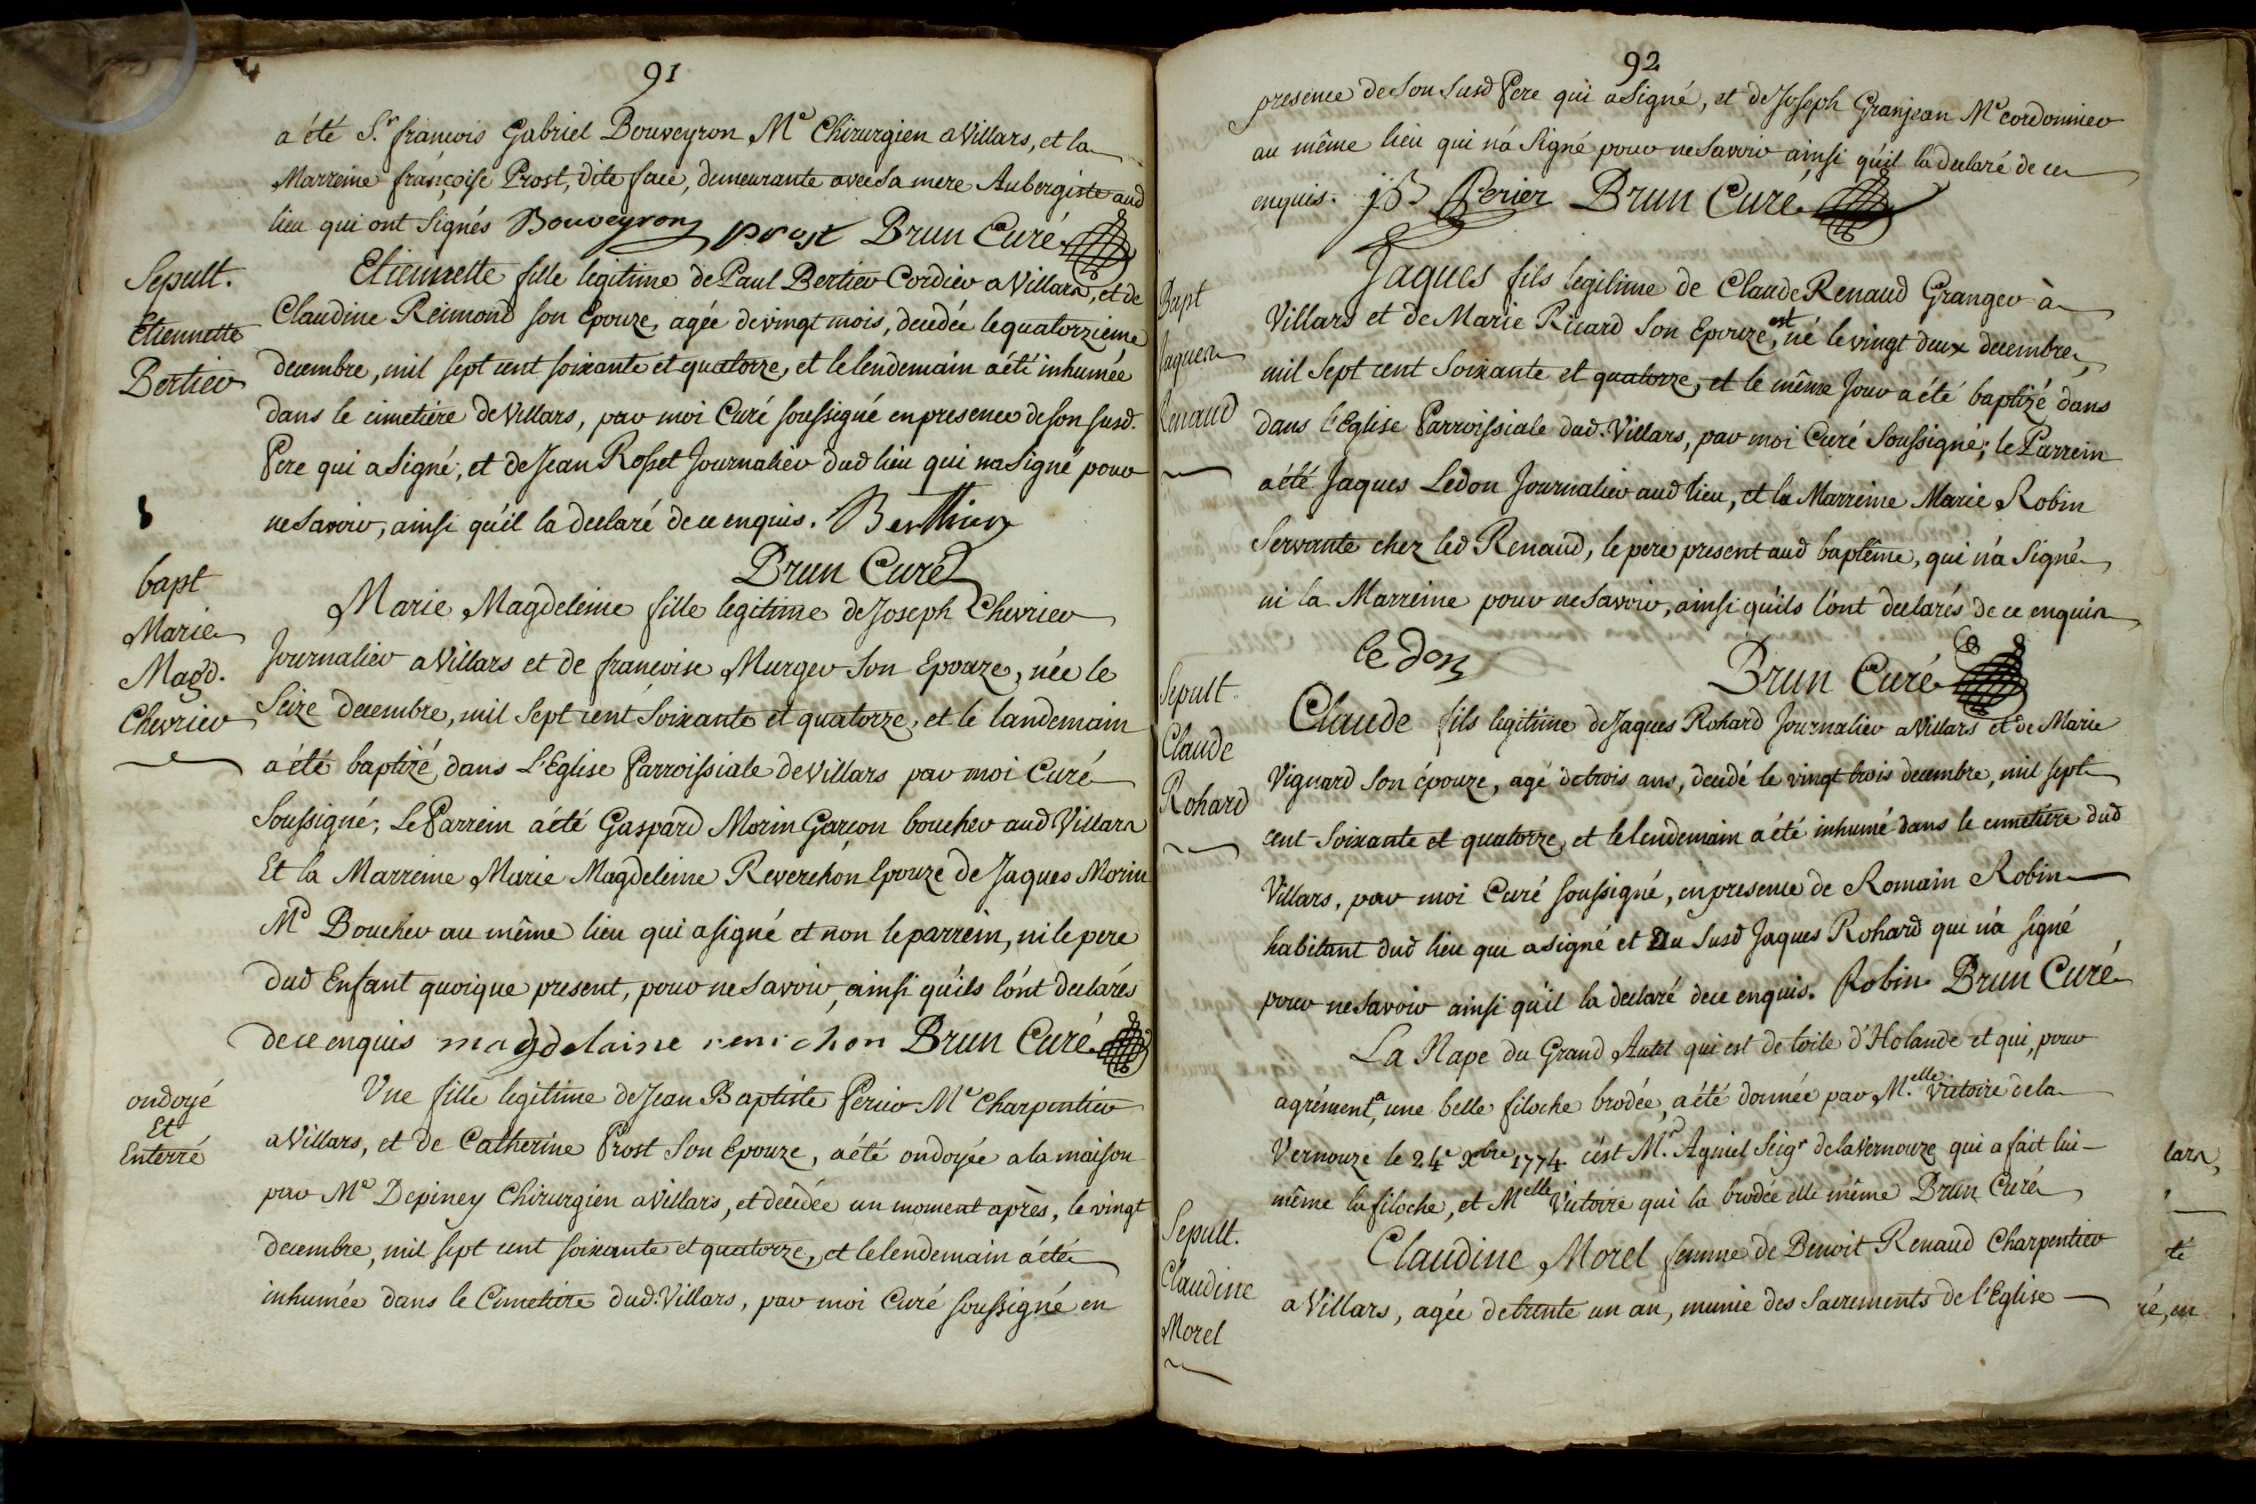 91
a été S.r françois Gabriel Bouveyron M.e Chirurgien a Villars, et la
Marreine françoise Prost, dite face, demeurante avec sa mere Aubergiste aud
lieu qui ont signés Bouveyron prost Brun Curé
Sepult.
Etiennette
Bertier
Etiennette fille legitime de Paul Bertier Cordier a Villars, et de
Claudine Reimond son Epouze, agée de vingt mois, decedée le quatorzieme
decembre, mil sept cent soixante et quatorze, et le lendemain a été inhumée
dans le cimetiére de Villars, par moi Curé soussigné en presence de son susd.
Pere qui a signé, et de Jean Rosset Journalier dud lieu qui na signé pour
ne savoir, ainsi qu'il la declaré de ce enquis. Berthier
Brun Curé
bapt
Marie
Magd.
Chevrier
Marie Magdeleine fille legitime de Joseph Chevrier
Journalier a Villars et de francoise Murger son Epouze, née le
Seize decembre, mil sept cent soixante et quatorze, et le landemain
a été baptizé dans L'Eglise Parroissiale de Villars par moi Curé
Soussigné; Le Parrein a été Gaspard Morin Garcon boucher aud Villars
Et la Marreine Marie Magdeleine Reverchon Epouze de Jaques Morin
M.d Boucher au même lieu qui a signé et non le parrein, ni le pere
dud Enfant quoique present, pour ne savoir, ainsi qu'ils l'ont declarés
de ce enquis magdelaine Brun Curé
ondoyé
Et
Enterré
Une fille legitime de Jean Baptiste Perier M.e Charpentier
a Villars, et de Catherine Prost son Epouze, a été ondoyée a la maison
par M.e Depiney Chirurgien a Villars, et decedée un moment après, le vingt
decembre, mil sept cent soixante et quatorze, et le lendemain a été
inhumée dans le Cimetiere dud. Villars, par moi Curé soussigné en
92
presence de son susd Pere qui a signé, et de Joseph Granjean M.e cordonnier
au même lieu qui n'a signé pour ne savoir ainsi qu'il la declaré de ce
enquis. j B Perier Brun Curé
Bapt
Jaques
Renaud
Jaques fils legitime de Claude Renaud Granger à
Villars et de Marie Ricard son Epouze, est né le vingt deux decembre,
mil sept cent soixante et quatorze, et le même Jour a été baptizé dans
dans l'Eglise Parroissiale dud. Villars, par moi Curé Soussigné; le Parrein
a été Jaques Ledon Journalier aud lieu, et la Marreine Marie Robin
Servante chez led Renaud, le pere present aud baptême, qui n'a signé
ni la Marreine pour ne savoir, ainsi qu'ils l'ont declarés de ce enquis
ledon Brun Curé
Sepult.
Claude
Rohard
Claude fils legitime de Jaques Rohard Journalier a Villars et de Marie
Vignard son épouze, agé de trois ans, decedé le vingt trois decembre, mil sept
cent soixante et quatorze, et le lendemain a été inhumé dans le cimetiere dud
Villars, par moi Curé soussigné, en presence de Romain Robin
habitant dud lieu qui a signé et Du susd Jaques Rohard qui n'a signé
pour ne savoir ainsi qu'il la declaré de ce enquis. Robin Brun Curé
La Nape du Grand Autel qui est de toile d'Holande et qui, pour
agrément, a une belle filoche brodée, a été donnée par M.elle Victoire de la
Vernouze le 24e Xbre 1774 c'est M.r Agniel Seigr de la Vernouze qui a fait lui-
même la filoche, et M.elle Victoire qui la brodée elle même Brun Curé
Sepult.
Claudine
Morel
Claudine Morel femme de Benoit Renaud Charpentier
a Villars, agée de trente un an, munie des Sacrements de l'Eglise
lars,
té
ré, en